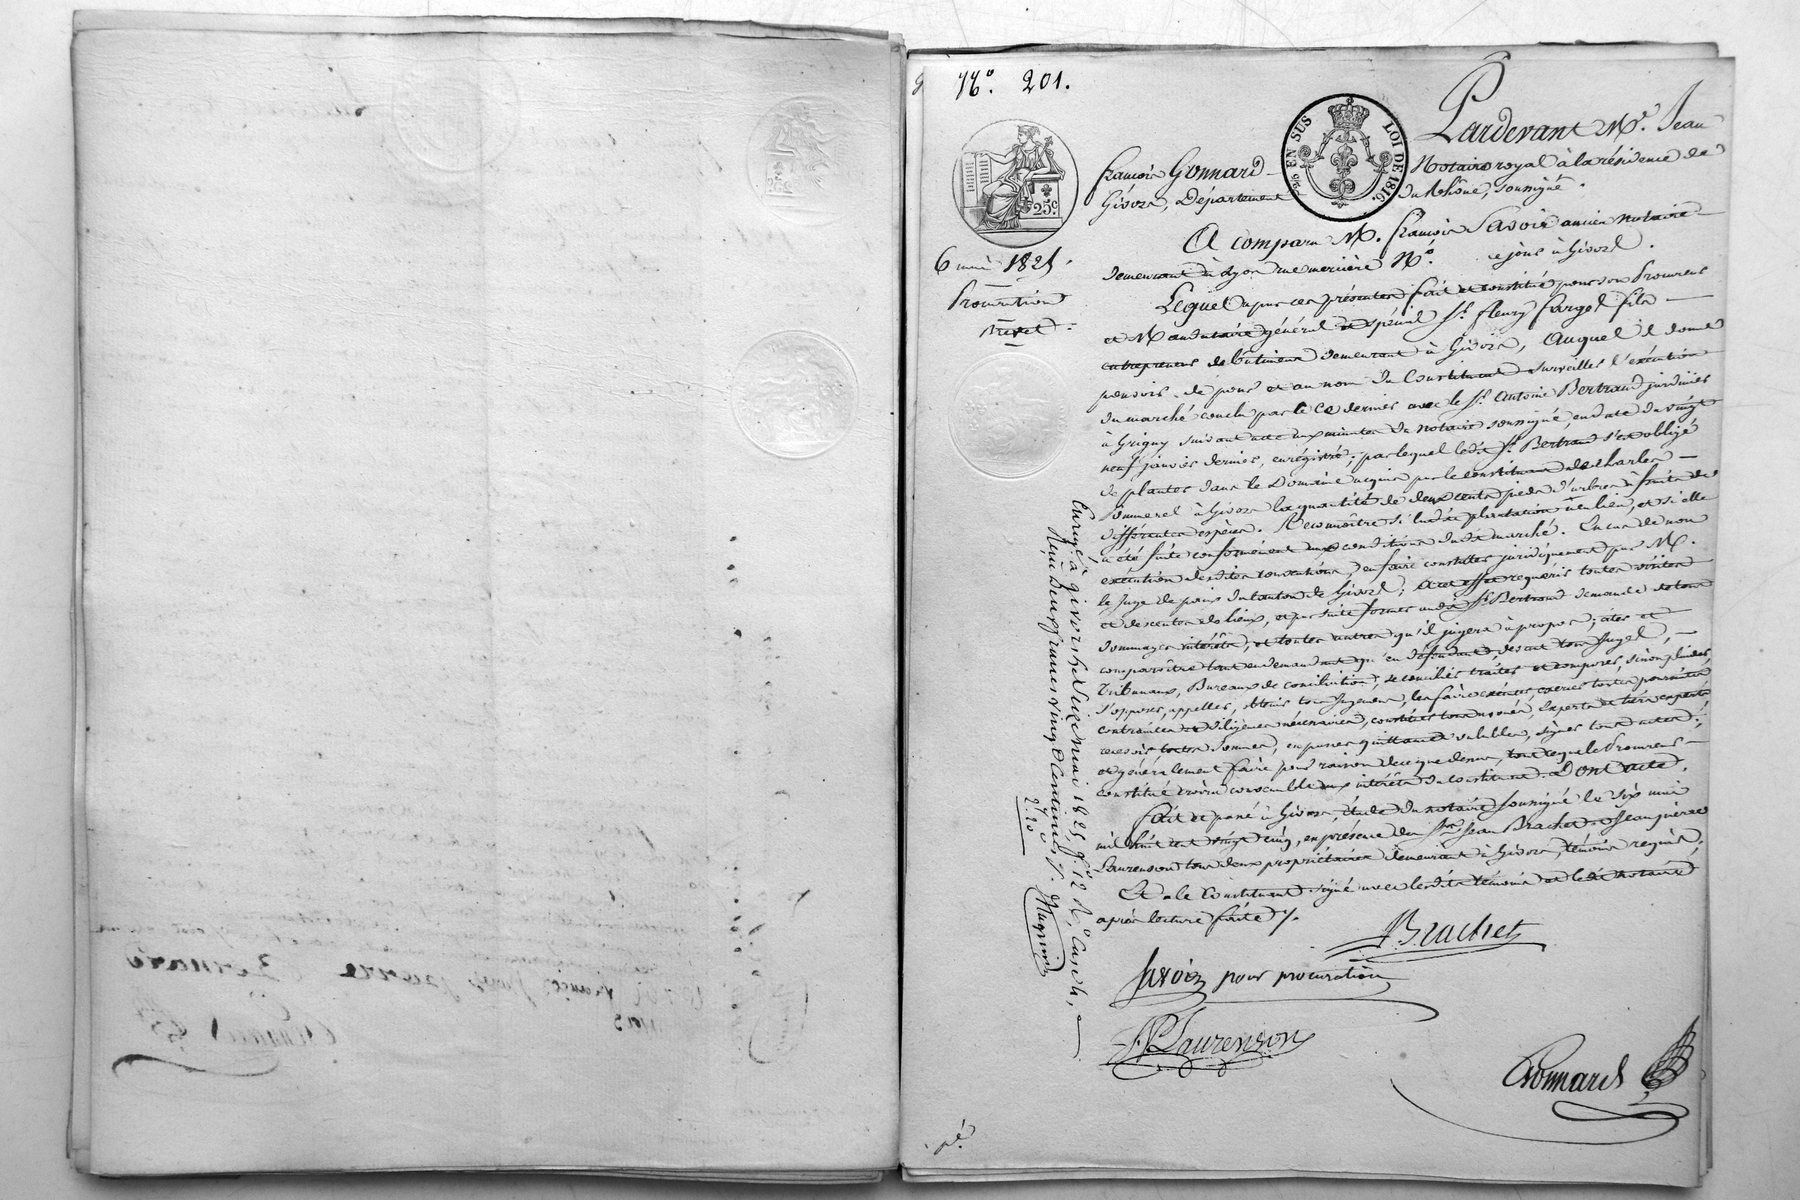 N.º 201.
25ᶜ
EN SUS LOI DE 1816.
6 mai 1825.
Procuration
Brevet
Pardevant Mᵉ. Jean
françois Gonnard Notaire royal à la résidence de
Givors, Département du Rhône, soussigné.
A comparu M. françois Savoie ancien notaire
demeurant à Lyon rue mercière Nº. ce jour à Givors.
Lequel a par ces présentes fait et constitué pour son Procureur
et Mandataire général et spécial Sʳ. fleury farge fils
entrepreneur de bâtimens demeurant à Givors, Auquel il donne
pouvoir, de pour et au nom du Constituant surveiller l'exécution
du marché conclu par le Ce dernier avec le Sʳ. Antoine Bertrand jardinier
à Grigny suivant acte aux minutes du notaire soussigné, en date du vingt
neuf janvier dernier, enrégistré; par lequel ledit Sʳ. Bertrand s'est obligé
de planter dans le Domaine acquis par le constituant de charles
à Givors la quantité de deux cents pieds d'arbres à fruits de
différentes espèces. Reconnoître si ladite plantation a eu lieu, et si elle
a été faite conformément aux conditions dudit marché. En cas de non
exécution desdites conventions, en faire constater juridiquement par M.
le Juge de paix du canton de Givors; à cet effet requérir toutes visites
et descentes de lieux, et par suite former audit Sʳ. Bertrand demande de tous
dommages intérêts, et toutes autres qu'il jugera à propos; citer et
comparoître tant en demandant qu'en défendant, devant tous Juges,
Tribunaux, Bureaux de conciliation, se concilier, traiter et composer, sinon plaider,
s'opposer, appeller, obtenir tous Jugemens, les faire exécuter, exercer toutes poursuites
contraintes et diligences nécessaires, constituer tous avoués, Experts et tiers experts,
recevoir toutes sommes, en passer quittances valables, signer tous actes;
et généralement faire pour raison de ce que dessus, tout ce que le Procureur
constitué croira convenable aux intérêts du constituant. Dont acte.
fait et passé à Givors, étude du notaire soussigné le six mai
mil huit cent vingt cinq, en présence des Sʳˢ. Jean Brachet et Jean pierre
Laurenson tous deux propriétaires demeurant à Givors, témoins requis,
Et a le Constituant signé avec lesdits témoins et ledit notaire
après lecture faite.
Brachet
Savoie pour procuration
J P Laurenson
Gonnard
Enregé. à givors le Seize mai 1825, fº 12 Rº Case 4,
Reçu Deux francs vingt centimes
2,20